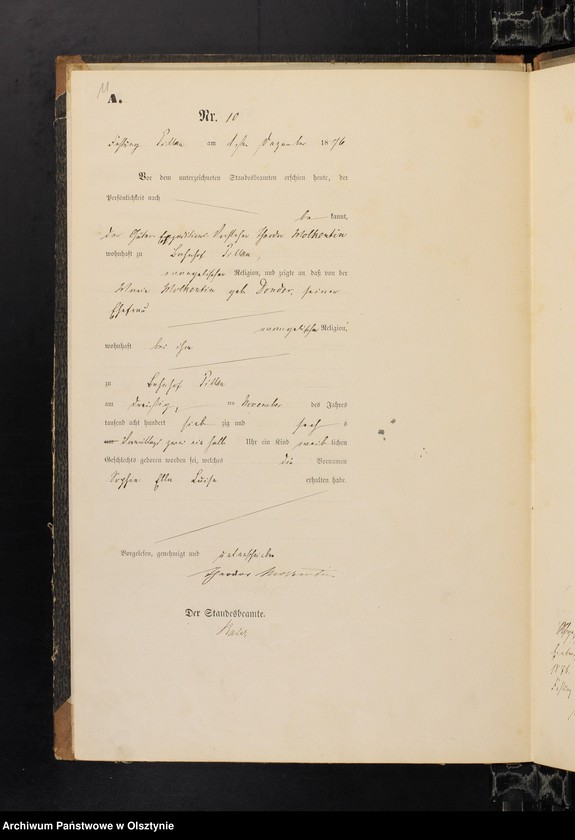 11
A.
Nr. 10
Festung Pillau am Dezember 1876
Vor dem unterzeichneten Standesbeamten erschien heute, der
Persönlichkeit nach
be kannt,
der Güter Expeditions Vorsteher Theodor Molkentin
wohnhaft zu Bahnhof Pillau,
evangelischer Religion, und zeigte an daß von der
Marie Molkentin geb. Donder, seiner
Ehefrau
evangelischer Religion,
wohnhaft bei ihm
zu Bahnhof Pillau
am dreißig, November des Jahres
tausend acht hundert sieb zig und sech s
Vormittags zwei ein halb Uhr ein Kind weib lichen
Geschlechts geboren worden sei, welches die Vornamen
Sophie Ella Luise erhalten habe.
Vorgelesen, genehmigt und unterschrieben
Theodor Molkentin
Der Standesbeamte.
1876.
Archiwum Państwowe w Olsztynie